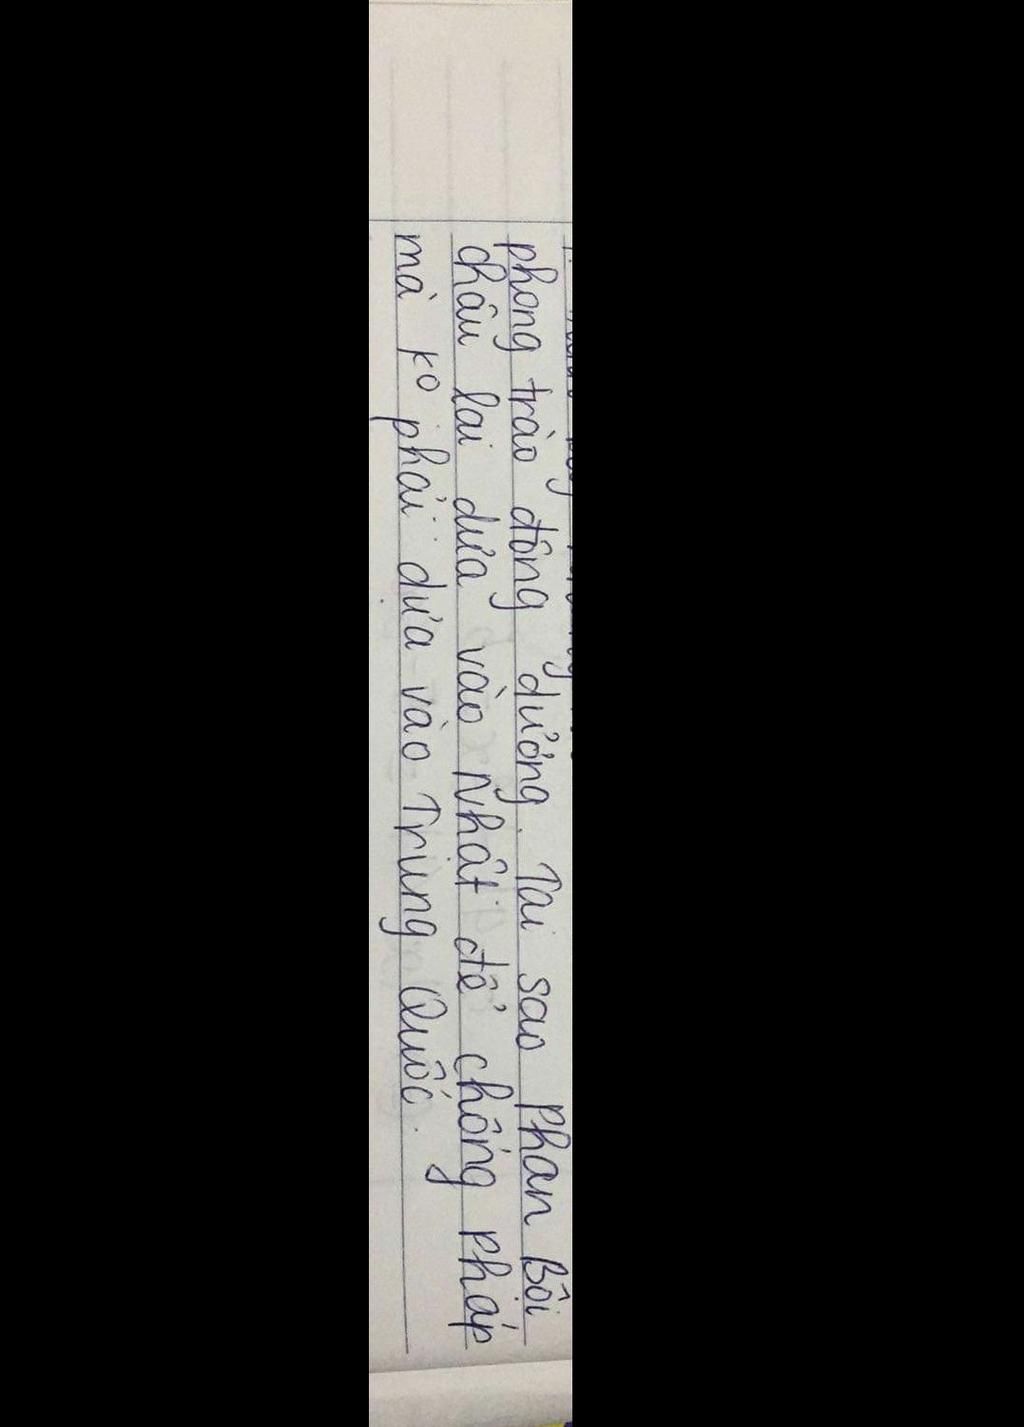 phong trào đông dương. Tại sao Phan Bôi
châu lại dựa vào Nhật để chống pháp
mà ko phải dựa vào Trung Quốc.